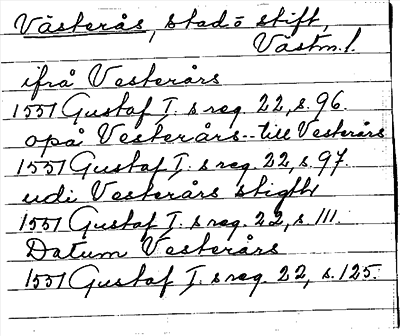 Västerås, stad o stift,
Västm. l.
ifrå Vesterårs
1551 Gustaf I. s reg. 22, s. 96.
opå Vesterårs -- till Vesterårs
1551 Gustaf I. s reg. 22, s. 97.
udi Vesterårs stigtt
1551 Gustaf I. s reg. 22, s. 111.
Datum Vesterårs
1551 Gustaf I. s reg. 22, s. 125.